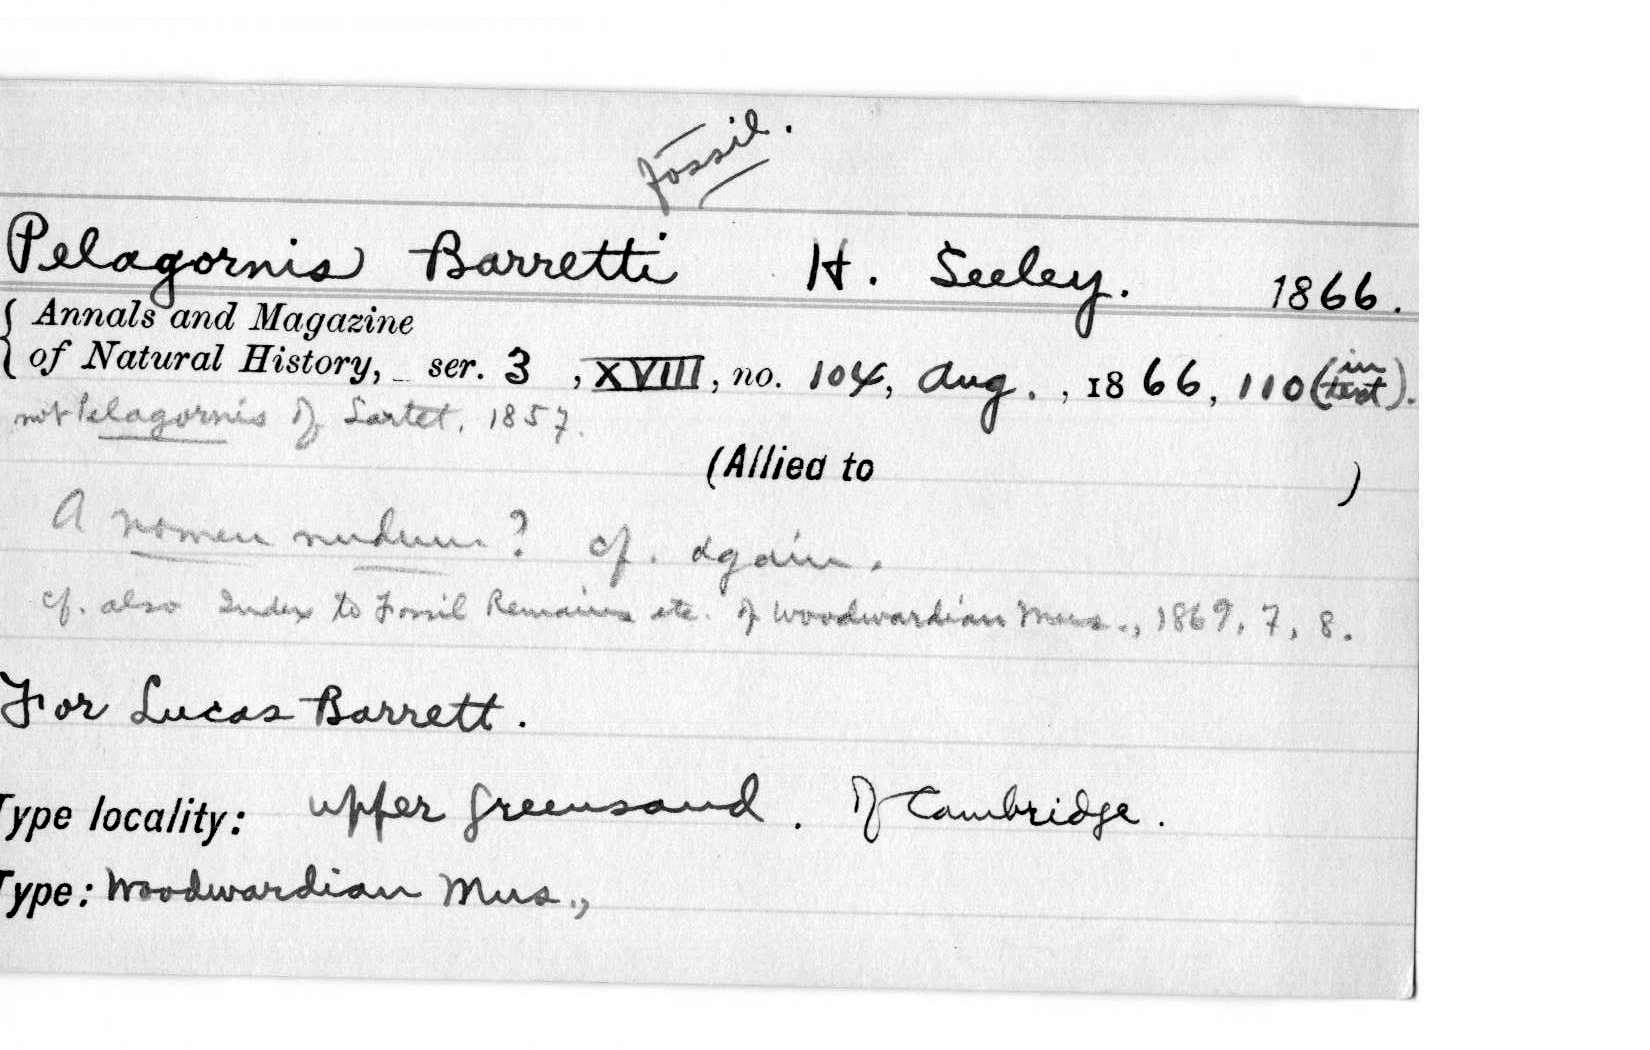 fossil.
Pelagornis Barretti H. Seeley. 1866.
{ Annals and Magazine
of Natural History, ser. 3, XVIII, no. 104, Aug., 1866, 110 (in text).
not Pelagornis of Lartet, 1857.
(Allied to )
A nomen nudum? cf. again.
cf. also Index to Fossil Remains etc. of Woodwardian Mus., 1869, 7, 8.
For Lucas Barrett.
Type locality: upper greensand. of Cambridge.
Type: Woodwardian Mus.,